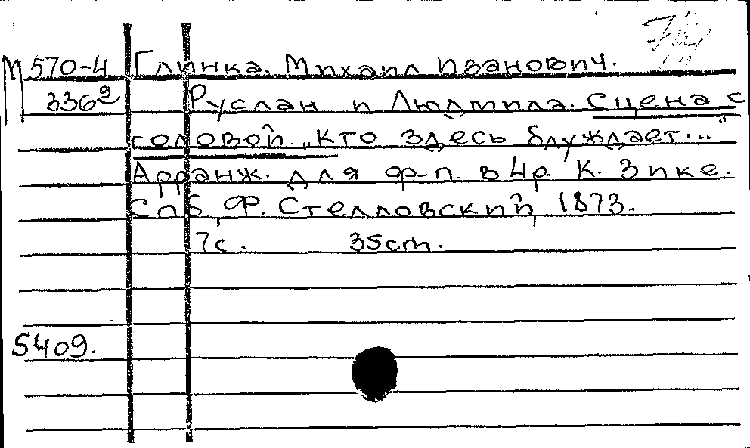 М 570-4 Глинка. Михаил Иванович.
336² Руслан и Людмила. Сцена с
головой „Кто здесь блуждает..."
Арранж. для ф-п. в 4р. К. Зике.
Спб, Ф. Стелловский, 1873.
7с. 35cm.
5409.